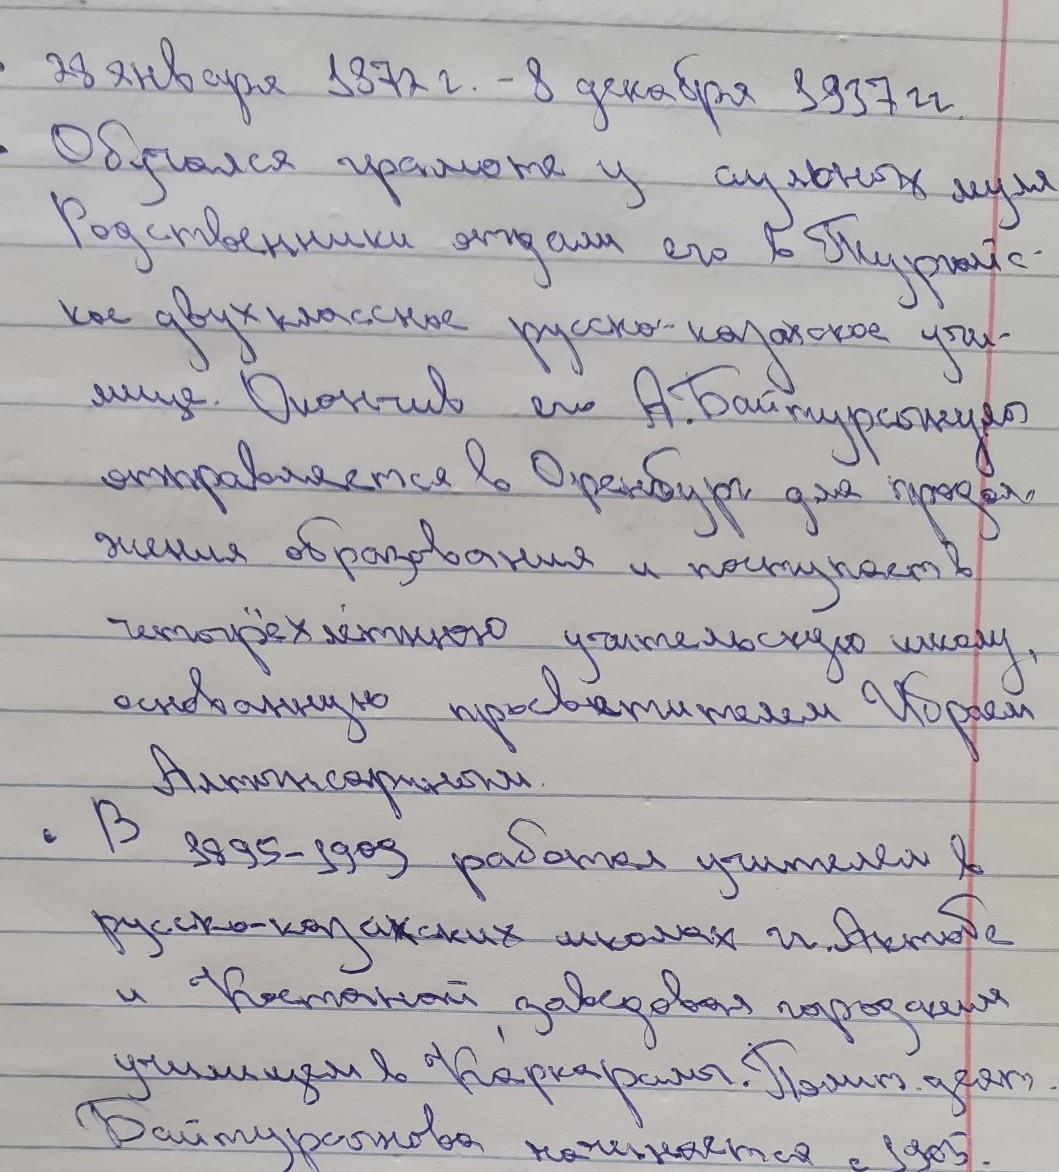 28 января 1872 г. - 8 декабря 1937 гг.
Обучался грамоте у аульных мулл
Родственники отдали его в Тургайс-
кое двухклассное русско-казахское учи-
лище. Окончив его А.Байтурсынулы
отправляется в Оренбург для продол-
жения образования и поступает в
четырёхлетнюю учительскую школу,
основанную просветителем Ибраем
Алтынсариным.
В 1895-1909 работал учителем в
русско-казахских школах гг. Актобе
и Костанай, заведовал городским
училищем в Каркаралы. Полит. деят.
Байтурсынова начинается с 1905.